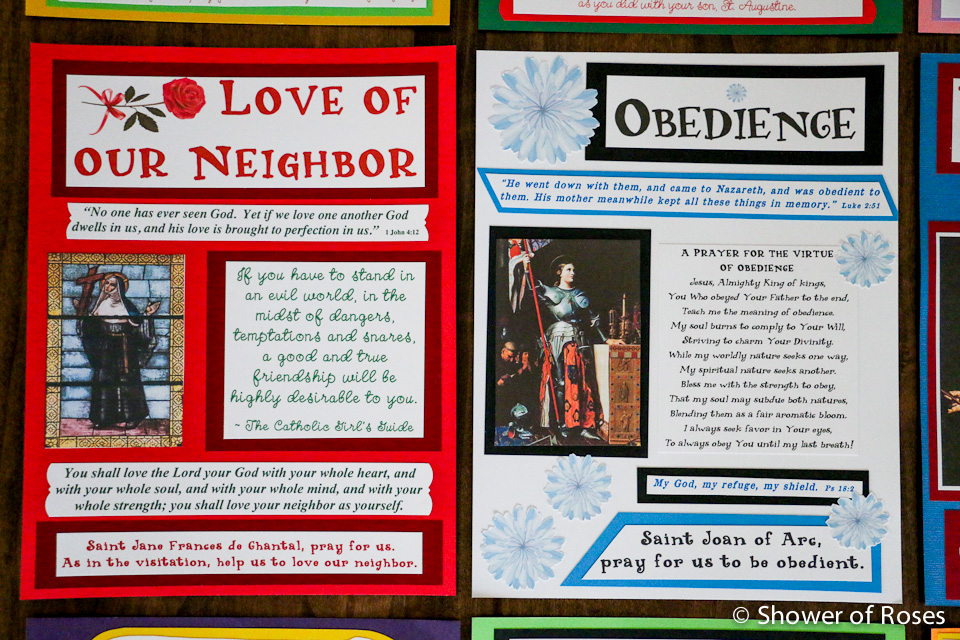 as you did with your son, St. Augustine.
LOVE OF
OUR NEIGHBOR
"No one has ever seen God. Yet if we love one another God
dwells in us, and his love is brought to perfection in us." 1 John 4:12
If you have to stand in
an evil world, in the
midst of dangers,
temptations and snares,
a good and true
friendship will be
highly desirable to you.
~ The Catholic Girl's Guide
You shall love the Lord your God with your whole heart, and
with your whole soul, and with your whole mind, and with your
whole strength; you shall love your neighbor as yourself.
Saint Jane Frances de Chantal, pray for us.
As in the visitation, help us to love our neighbor.
OBEDIENCE
"He went down with them, and came to Nazareth, and was obedient to
them. His mother meanwhile kept all these things in memory." Luke 2:51
A PRAYER FOR THE VIRTUE
OF OBEDIENCE
Jesus, Almighty King of kings,
You Who obeyed Your Father to the end,
Teach me the meaning of obedience.
My soul burns to comply to Your Will,
Striving to charm Your Divinity.
While my worldly nature seeks one way,
My spiritual nature seeks another.
Bless me with the strength to obey,
That my soul may subdue both natures,
Blending them as a fair aromatic bloom.
I always seek favor in Your eyes,
To always obey You until my last breath!
My God, my refuge, my shield. Ps 18:2
Saint Joan of Arc,
pray for us to be obedient.
© Shower of Roses